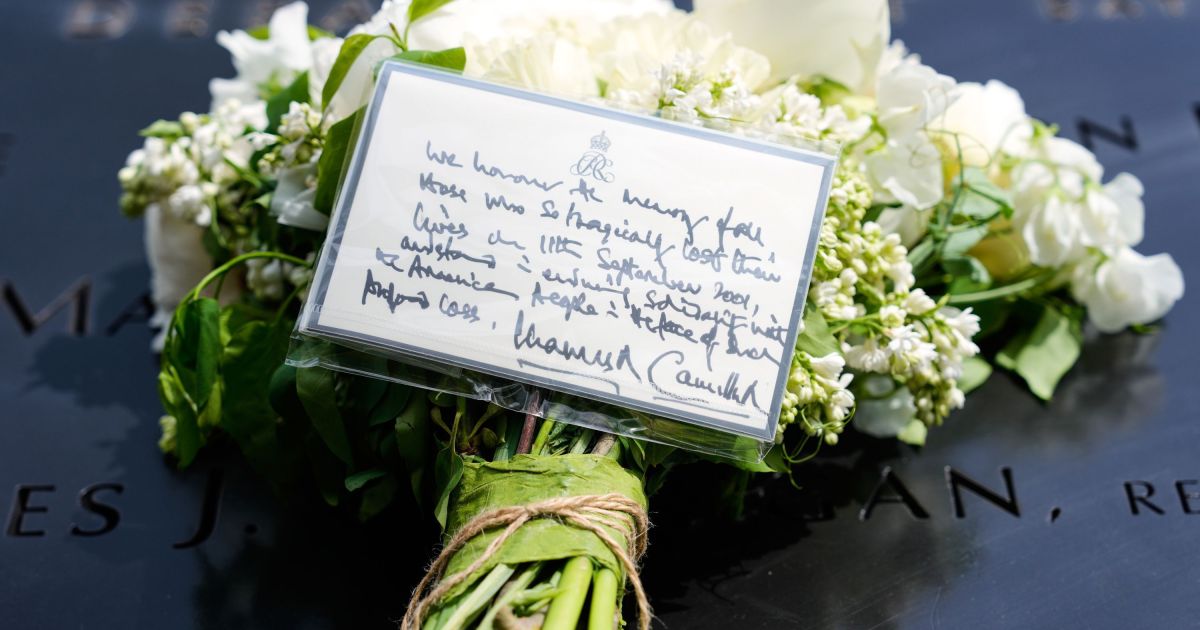 MA
N
We honour the memory of all
those who so tragically lost their
lives on 11th September 2001,
and stand in enduring solidarity with
the American people in the face of such
profound loss.
Charles R Camilla R
ES J.
GAN, RE